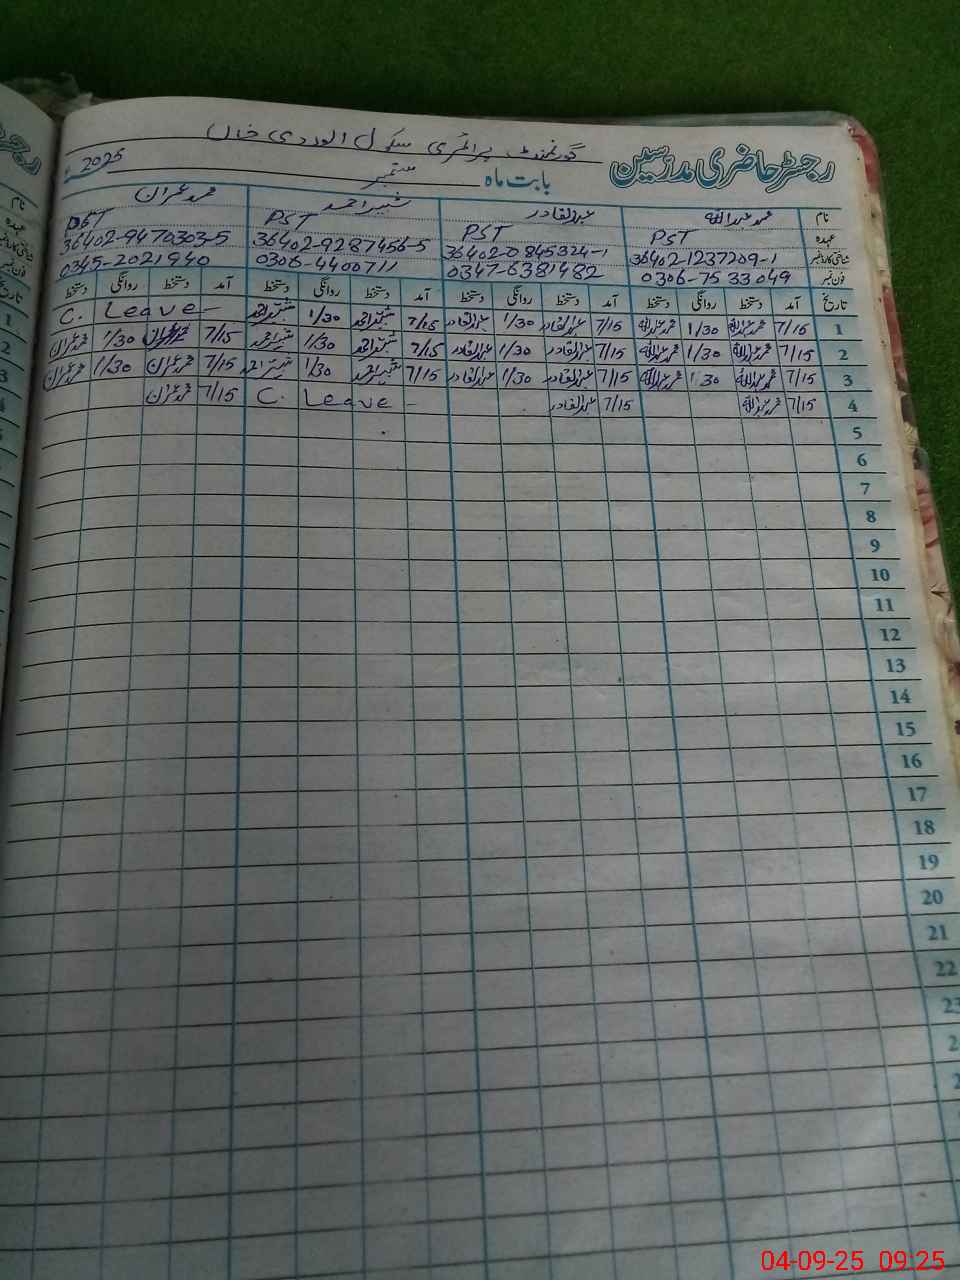 رجسٹر حاضری مدرسین گورنمنٹ پرائمری سکول الہ وردی خاں
بابت ماہ ستمبر 2025ء
نام محمد عبداللہ عبدالقادر شبیر احمد محمد عمران
عہدہ PST PST PST PST
شناختی کارڈ نمبر 36402-1237209-1 36402-0845324-1 36402-9287456-5 36402-9470303-5
فون نمبر 0306-7533049 0347-6381482 0306-4400711 0345-2021940
تاریخ آمد دستخط روانگی دستخط آمد دستخط روانگی دستخط آمد دستخط روانگی دستخط آمد دستخط روانگی دستخط
1 7/15 محمد عبداللہ 1/30 محمد عبداللہ 7/15 عبدالقادر 1/30 عبدالقادر 7/15 شبیر احمد 1/30 شبیر احمد C. Leave -
2 7/15 محمد عبداللہ 1/30 محمد عبداللہ 7/15 عبدالقادر 1/30 عبدالقادر 7/15 شبیر احمد 1/30 شبیر احمد 7/15 محمد عمران 1/30 محمد عمران
3 7/15 محمد عبداللہ 1/30 محمد عبداللہ 7/15 عبدالقادر 1/30 عبدالقادر 7/15 شبیر احمد 1/30 شبیر احمد 7/15 محمد عمران 1/30 محمد عمران
4 7/15 محمد عبداللہ 7/15 عبدالقادر C. Leave - 7/15 محمد عمران
5
6
7
8
9
10
11
12
13
14
15
16
17
18
19
20
21
22
23
04-09-25 09:25